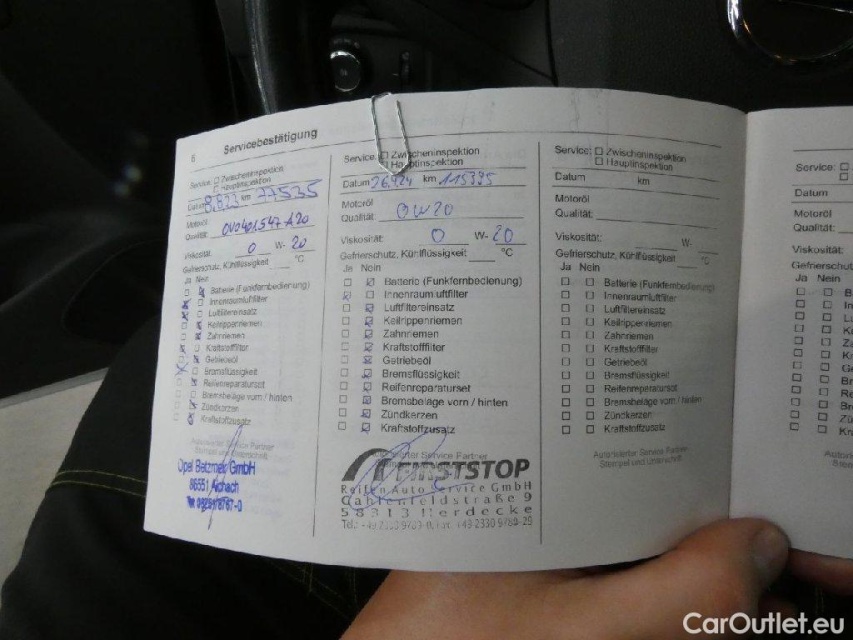 6 Servicebestätigung
Service: □ Zwischeninspektion
□ Hauptinspektion
Datum 8.8.23 km 77535
Motoröl
Qualität: 0V0401547A20
Viskosität: 0 W- 20
Gefrierschutz, Kühlflüssigkeit ____ °C
Ja Nein
Batterie (Funkfernbedienung)
Innenraumluftfilter
Luftfiltereinsatz
Keilrippenriemen
Zahnriemen
Kraftstofffilter
Getriebeöl
Bremsflüssigkeit
Reifenreparaturset
Bremsbeläge vorn / hinten
Zündkerzen
Kraftstoffzusatz
Autorisierter Service Partner
Opel Betzmeir GmbH
86551 Aichach
Service: □ Zwischeninspektion
□ Hauptinspektion
Datum 26.9.24 km 115395
Motoröl
Qualität: 0W20
Viskosität: 0 W- 20
Gefrierschutz, Kühlflüssigkeit ____ °C
Ja Nein
Batterie (Funkfernbedienung)
Innenraumluftfilter
Luftfiltereinsatz
Keilrippenriemen
Zahnriemen
Kraftstofffilter
Getriebeöl
Bremsflüssigkeit
Reifenreparaturset
Bremsbeläge vorn / hinten
Zündkerzen
Kraftstoffzusatz
Autorisierter Service Partner
FIRSTSTOP
Reifen Auto Service GmbH
Gahlenfeldstraße 9
58313 Herdecke
Service: □ Zwischeninspektion
□ Hauptinspektion
Datum km
Motoröl
Qualität:
Viskosität: W-
Gefrierschutz, Kühlflüssigkeit ____ °C
Ja Nein
Batterie (Funkfernbedienung)
Innenraumluftfilter
Luftfiltereinsatz
Keilrippenriemen
Zahnriemen
Kraftstofffilter
Getriebeöl
Bremsflüssigkeit
Reifenreparaturset
Bremsbeläge vorn / hinten
Zündkerzen
Kraftstoffzusatz
Autorisierter Service Partner
Stempel und Unterschrift
Service: □
Datum
Motoröl
Qualität:
Viskosität:
Gefrierschutz
Ja Nein
CarOutlet.eu